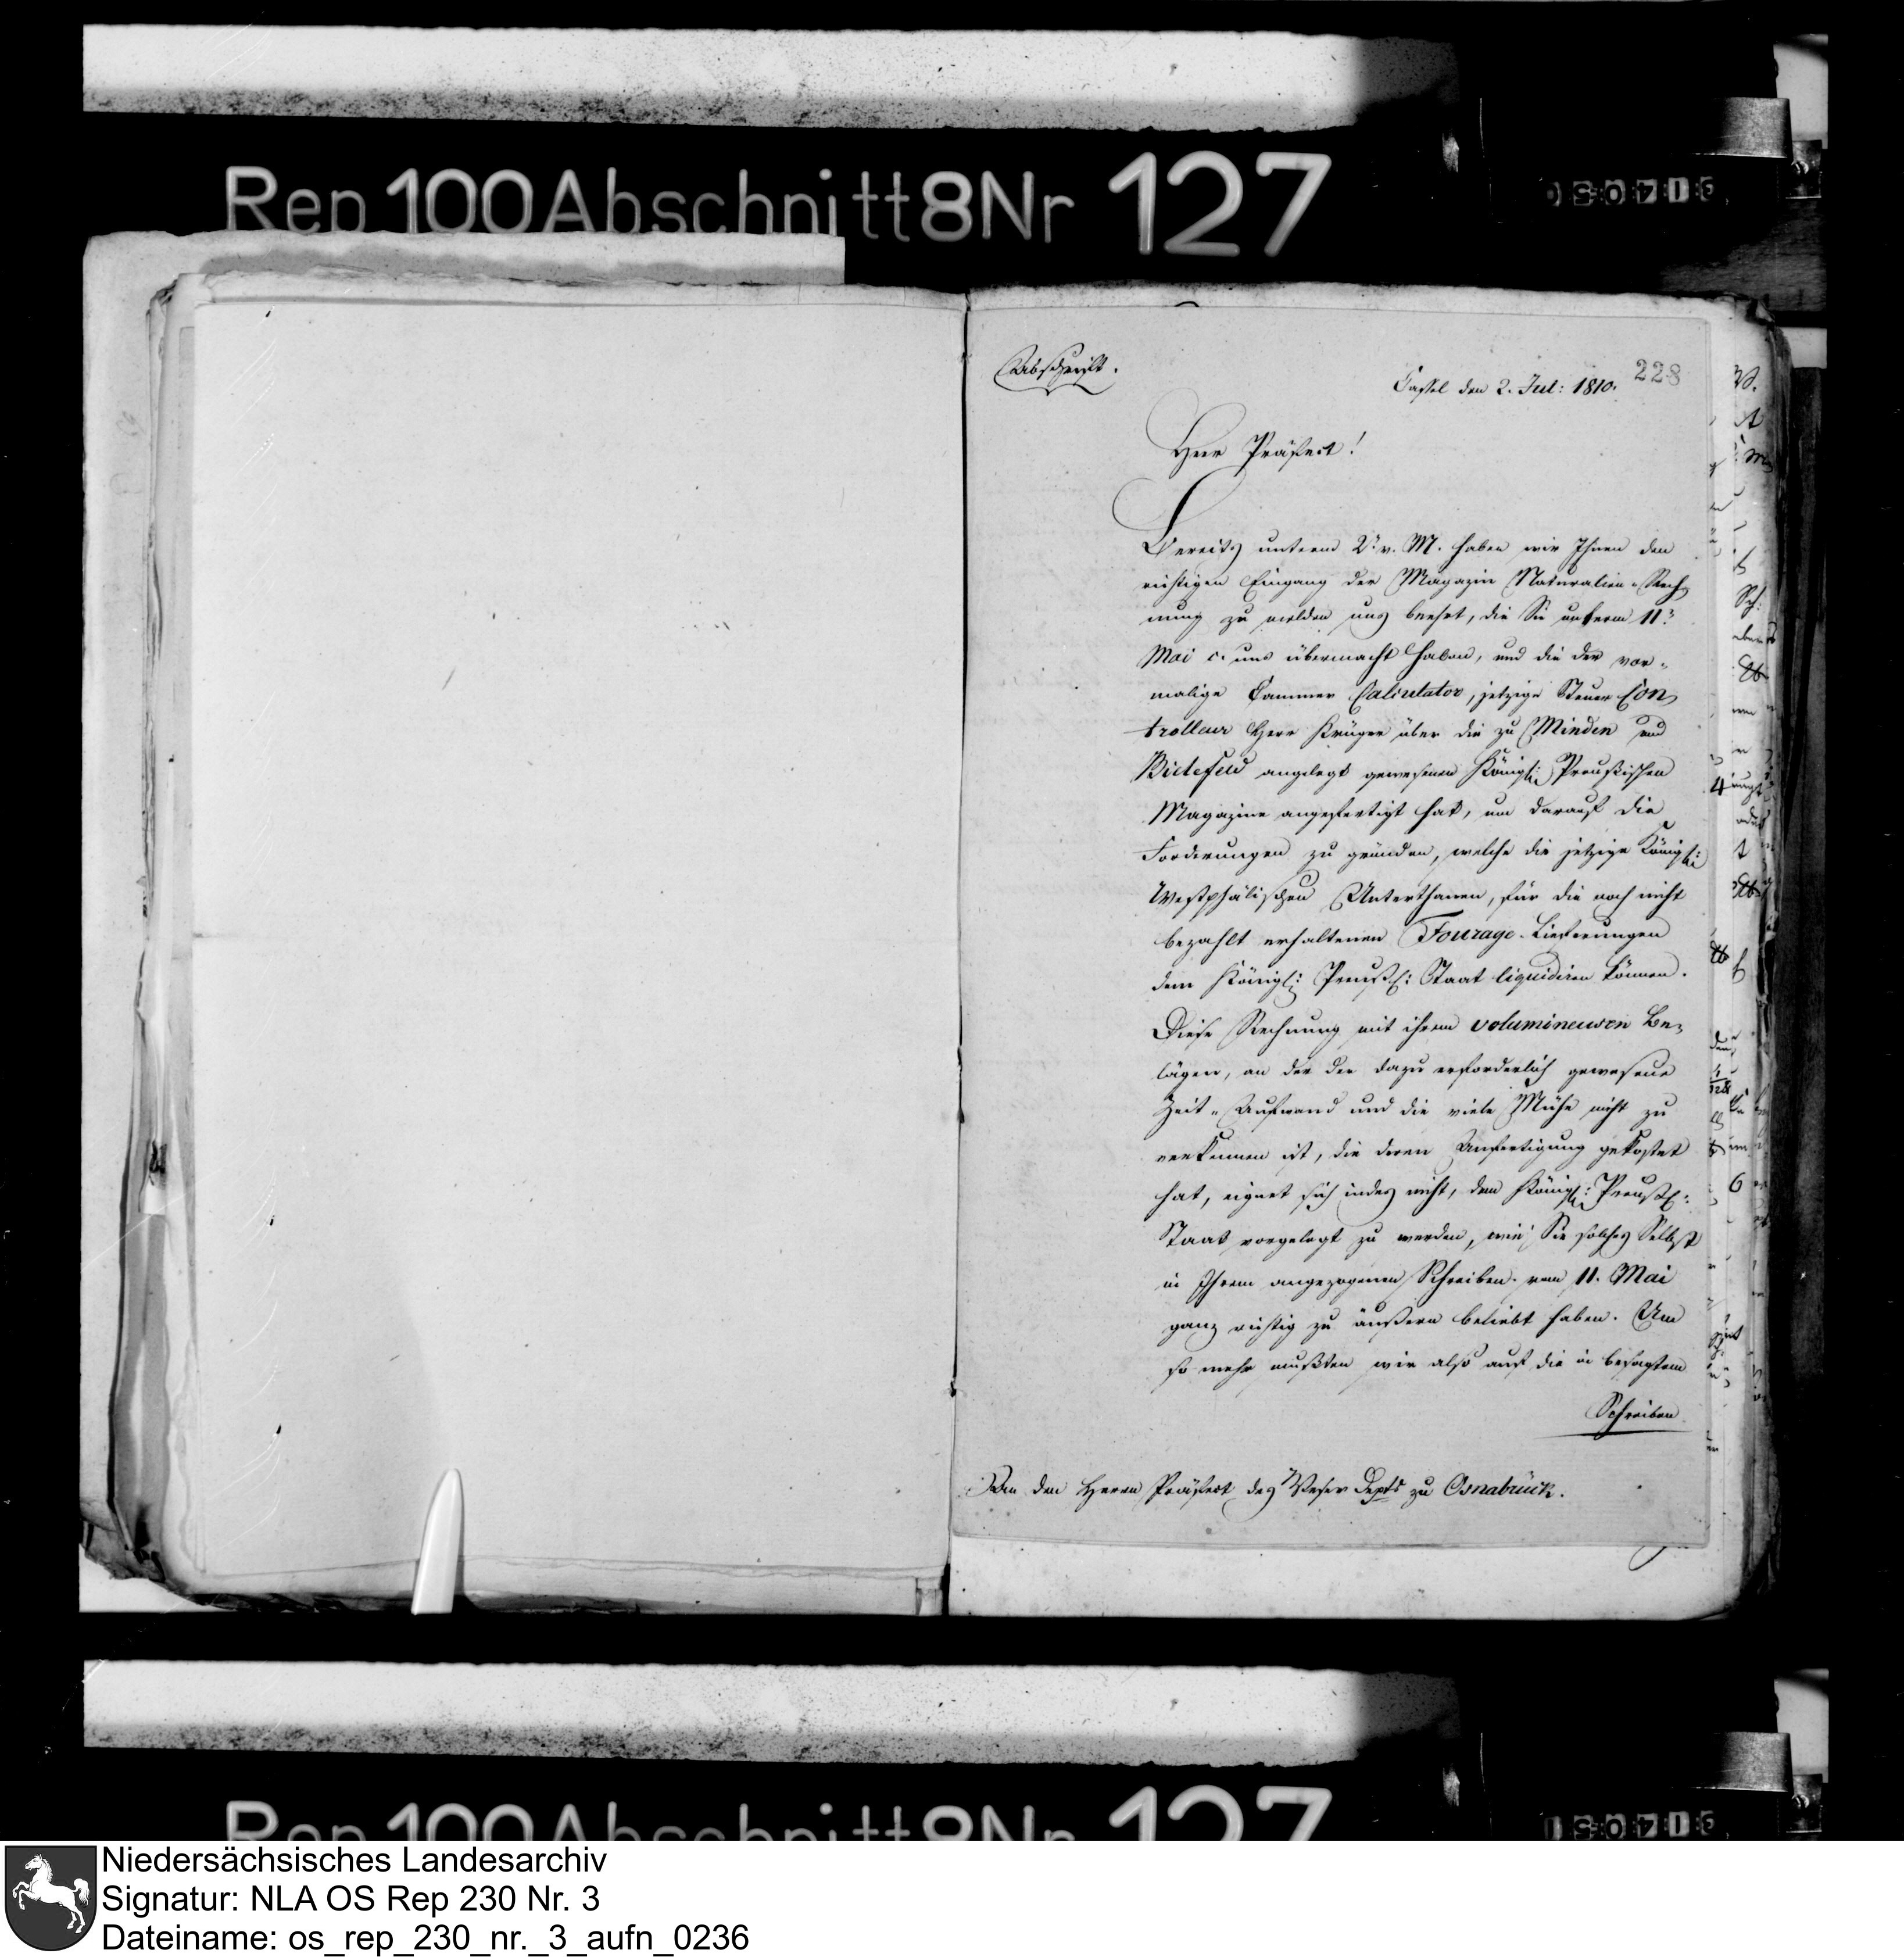 Rep 100 Abschnitt 8 Nr 127
Abschrift.
228
Cassel den 2. Jul: 1810.
Herr Präfect!
Bereits unterm 2t v. M. haben wir Ihnen den
richtigen Eingang der Magazin Naturalien-Rech-
nung zu melden uns beehrt, die Sie unterm 11t
Mai c. uns übermacht haben, und die der vor-
malige Cammer Calculator, jetzige Steuer Con-
trolleur Herr Krüger über die zu Minden und
Bielefeld angelegt gewesenen Königl: Preußischen
Magazine angefertigt hat, um darauf die
Forderungen zu gründen, welche die jetzige Königl:
Westphälischen Unterthanen, für die noch nicht
bezahlt erhaltenen Fourage-Lieferungen
dem Königl: Preuß: Staat liquidiren können.
Diese Rechnung mit ihren volumineusen Be-
lägen, an der der dazu erforderlich gewesene
Zeit-Aufwand und die viele Mühe nicht zu
verkennen ist, die deren Anfertigung gekostet
hat, eignet sich indes nicht, dem Königl: Preuß:
Staat vorgelegt zu werden, wie Sie solches Selbst
in Ihrem angezogenen Schreiben vom 11. Mai
ganz richtig zu äußern beliebt haben. Um
so mehr mußten wir also auf die in besagtem
Schreiben
An den Herrn Präfect des Weser Depts zu Osnabrück.
Rep 100 Abschnitt 8 Nr 127
Niedersächsisches Landesarchiv
Signatur: NLA OS Rep 230 Nr. 3
Dateiname: os_rep_230_nr._3_aufn_0236